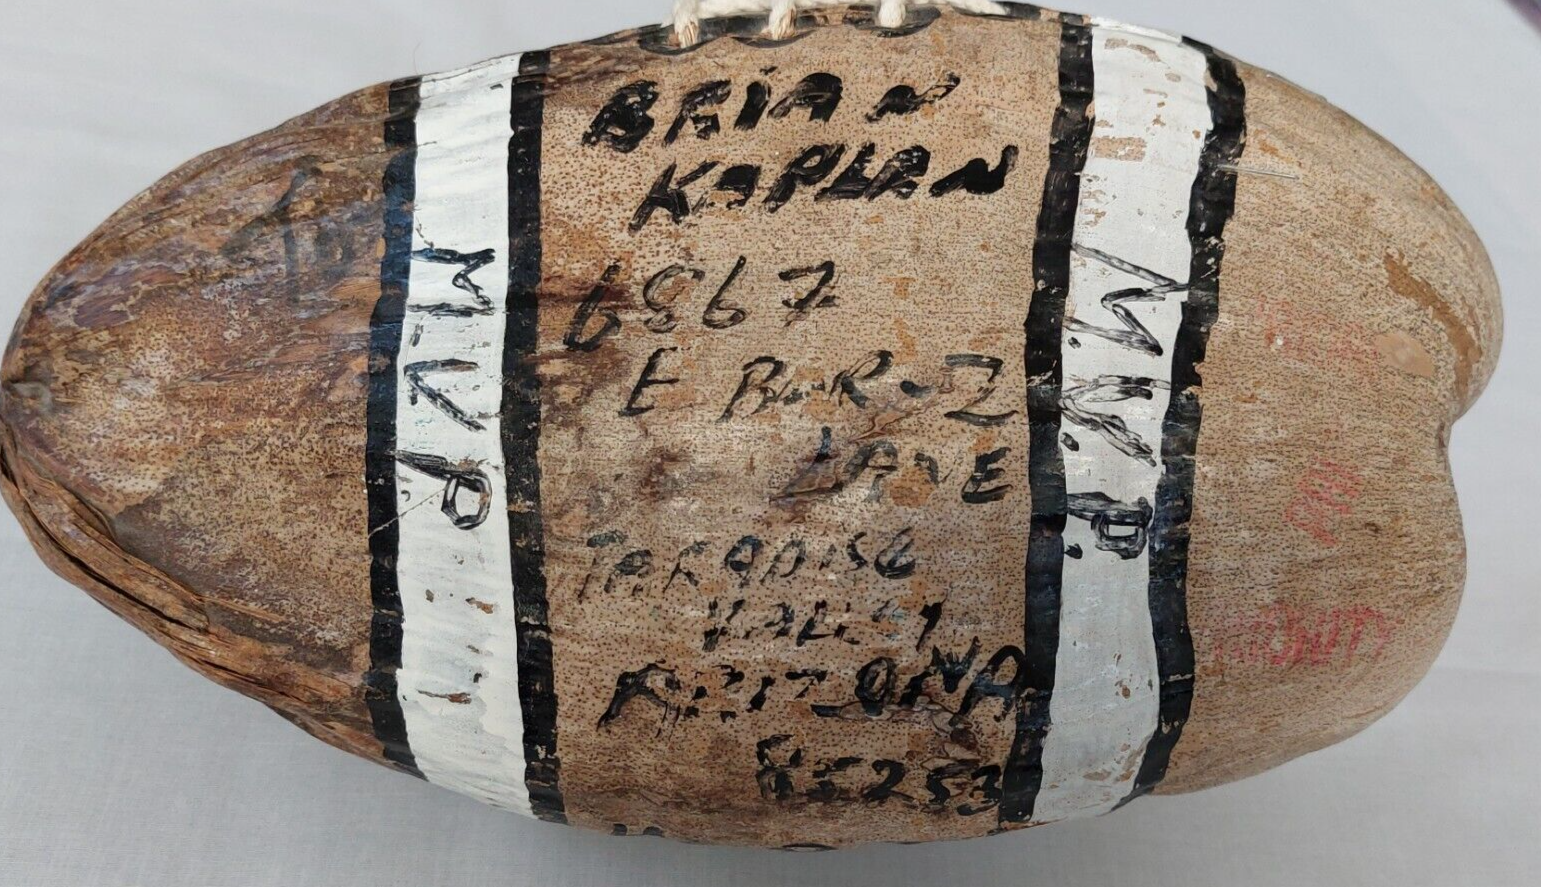 BRIAN
KAPLAN
6867
E BAR-Z
LANE
PARADISE
VALLEY
ARIZONA
85253
M.V.P.
M.V.P.